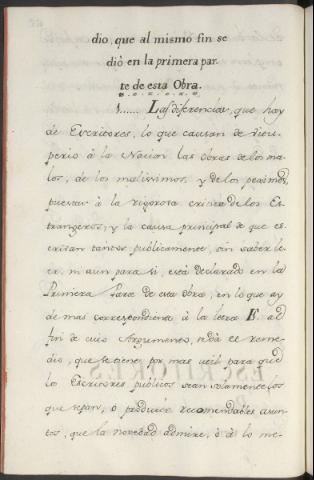 dio, que al mismo fin se
diò en la primera par-
te de esta Obra.
1...... Las diferencias, que hay
de Escritores, lo que causan de vitu-
perio à la Nacion las obras de los ma-
los, de los malissimos, y de los pesimos,
puestas à la rigorosa critica de los Es-
trangeros; y la causa principal de que es-
crivan tantos publicamente, sin saber le-
er, ni aun para si, està declarado en la
Primera Parte de esta obra, en lo que ay
de mas correspondiente à la letra E. al
fin de cuio Argumento, se dà el reme-
dio, que se tiene por mas util para que
los Escritores publicos sean solamente los
que sepan, ò producir recomendables asun-
tos, que la novedad admire, ò à lo me-